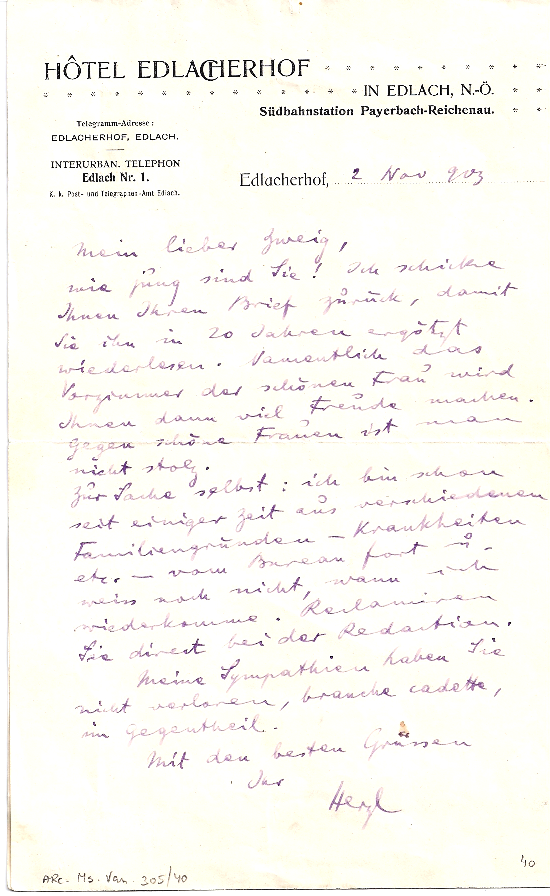 HÔTEL EDLACHERHOF
IN EDLACH, N.-Ö.
Südbahnstation Payerbach-Reichenau.
Telegramm-Adresse:
EDLACHERHOF, EDLACH.
INTERURBAN. TELEPHON
Edlach Nr. 1.
K. k. Post- und Telegraphen-Amt Edlach.
Edlacherhof, 2 Nov 903
Mein lieber Zweig,
wie jung sind Sie! Ich schicke
Ihnen Ihren Brief zurück, damit
Sie ihn in 20 Jahren ergötzt
wiederlesen. Namentlich das
Vorzimmer der schönen Frau wird
Ihnen dann viel Freude machen.
Gegen schöne Frauen ist man
nicht stolz.
Zur Sache selbst: ich bin schon
seit einiger Zeit aus verschiedenen
Familiengründen – Krankheiten
etc. – vom Bureau fort u.
weiss noch nicht, wann ich
wiederkomme. Reclamiren
Sie direct bei der Redaction.
Meine Sympathien haben Sie
nicht verloren, branche cadette,
im Gegentheil.
Mit den besten Grüssen
Ihr
Herzl
ARC. Ms. Var. 305/40
40